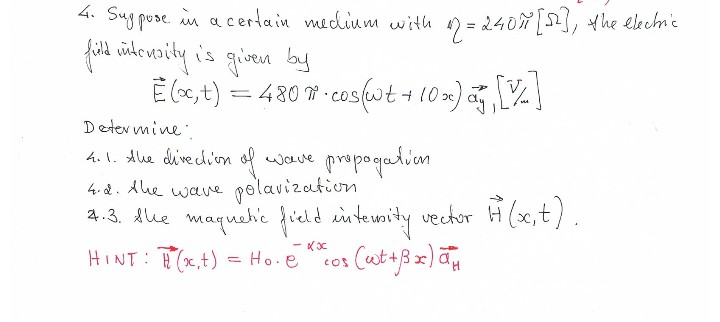 4. Suppose in a certain medium with η = 240π [Ω], the electric
field intensity is given by
E⃗(x,t) = 480π·cos(ωt + 10x) a⃗y, [V/m]
Determine:
4.1. the direction of wave propagation
4.2. the wave polarization
4.3. the magnetic field intensity vector H⃗(x,t).
HINT: H⃗(x,t) = H₀·e^-αx cos(ωt+βx) a⃗H